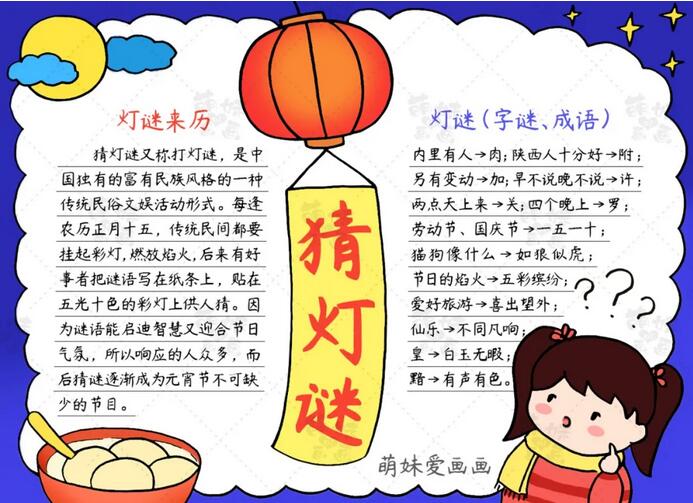 灯谜来历
猜灯谜又称打灯谜，是中
国独有的富有民族风格的一种
传统民俗文娱活动形式。每逢
农历正月十五，传统民间都要
挂起彩灯，燃放焰火，后来有好
事者把谜语写在纸条上，贴在
五光十色的彩灯上供人猜。因
为谜语能启迪智慧又迎合节日
气氛，所以响应的人众多，而
后猜谜逐渐成为元宵节不可缺
少的节目。
猜灯谜
灯谜（字谜、成语）
内里有人→肉；陕西人十分好→附；
另有变动→加；早不说晚不说→许；
两点天上来→关；四个晚上→罗；
劳动节、国庆节→一五一十；
猫狗像什么→如狼似虎；
节日的焰火→五彩缤纷；
爱好旅游→喜出望外；
仙乐→不同凡响；
皇→白玉无暇；
黯→有声有色。
???
萌妹爱画画